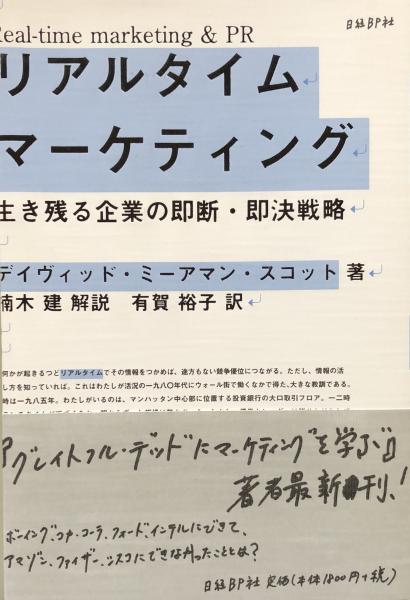 Real-time marketing & PR
日経BP社
リアルタイム
マーケティング
生き残る企業の即断・即決戦略
デイヴィッド・ミーアマン・スコット 著
楠木 建 解説 有賀 裕子 訳
何かが起きるつどリアルタイムでその情報をつかめば、途方もない競争優位につながる。ただし、情報の活
し方を知っていれば。これはわたしが活況の一九八〇年代にウォール街で働くなかで得た、大きな教訓である。
時は一九八五年。わたしがいるのは、マンハッタン中心部に位置する投資銀行の大口取引フロア。一二時
『グレイトフル・デッドにマーケティングを学ぶ』
著者最新刊、!
ボーイング、コカ・コーラ、フォード、インテルにできて、
アマゾン、ファイザー、シスコにできなかったこととは?
日経BP社 定価(本体1800円+税)